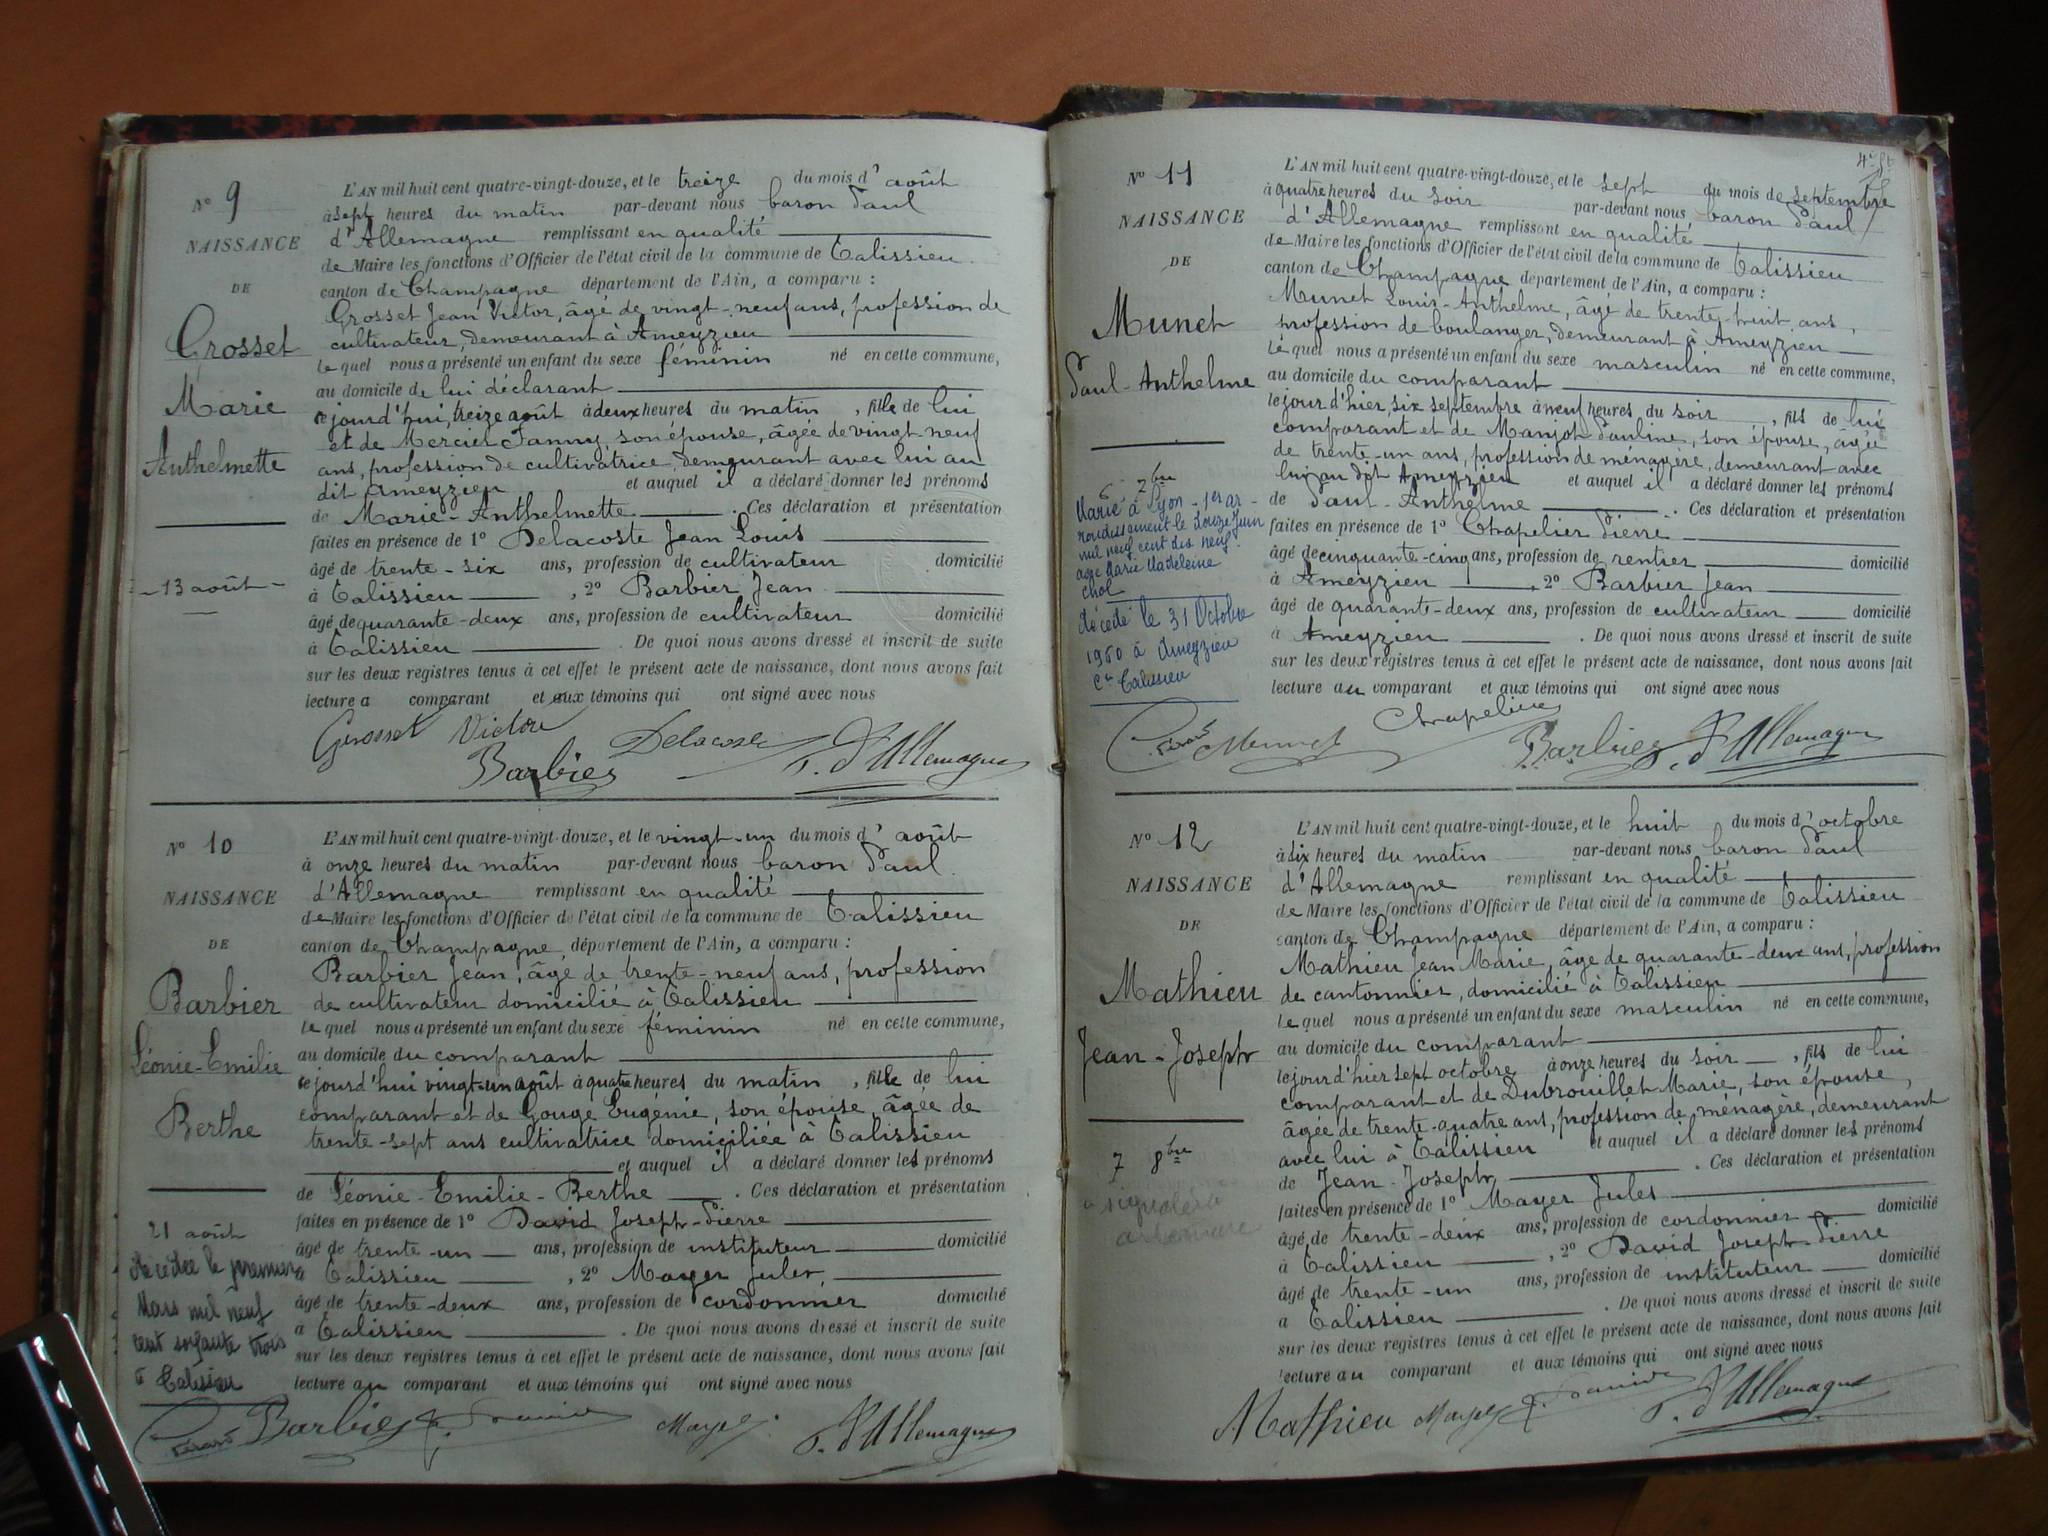 N° 9
NAISSANCE
DE
Grosset
Marie
Anthelmette
13 août
L'AN mil huit cent quatre-vingt-douze, et le treize du mois d'août
à sept heures du matin par-devant nous baron Paul
d'Allemagne remplissant en qualité
de Maire les fonctions d'Officier de l'état civil de la commune de Talissieu
canton de Champagne département de l'Ain, a comparu :
Grosset Jean Victor, âgé de vingt-neuf ans, profession de
cultivateur, demeurant à Ameyzieu
lequel nous a présenté un enfant du sexe féminin né en cette commune,
au domicile de lui déclarant
cejourd'hui, treize août à deux heures du matin, fille de lui
et de Mercier Fanny son épouse, âgée de vingt-neuf
ans, profession de cultivatrice demeurant avec lui au
dit Ameyzieu et auquel il a déclaré donner les prénoms
de Marie-Anthelmette. Ces déclaration et présentation
faites en présence de 1° Delacoste Jean Louis
âgé de trente-six ans, profession de cultivateur domicilié
à Talissieu, 2° Barbier Jean
âgé de quarante-deux ans, profession de cultivateur domicilié
à Talissieu. De quoi nous avons dressé et inscrit de suite
sur les deux registres tenus à cet effet le présent acte de naissance, dont nous avons fait
lecture a comparant et aux témoins qui ont signé avec nous
Grosset Victor Delacoste
Barbier P. d'Allemagne
N° 10
NAISSANCE
DE
Barbier
Léonie-Emilie
Berthe
21 août
décédée le premier
Mars mil neuf
cent soixante trois
à Talissieu
L'AN mil huit cent quatre-vingt-douze, et le vingt-un du mois d'août
à onze heures du matin par-devant nous baron Paul
d'Allemagne remplissant en qualité
de Maire les fonctions d'Officier de l'état civil de la commune de Talissieu
canton de Champagne, département de l'Ain, a comparu :
Barbier Jean, âgé de trente-neuf ans, profession
de cultivateur domicilié à Talissieu
lequel nous a présenté un enfant du sexe féminin né en cette commune,
au domicile du comparant
cejourd'hui vingt-un août à quatre heures du matin, fille de lui
comparant et de Gouge Eugénie, son épouse, âgée de
trente-sept ans cultivatrice domiciliée à Talissieu
et auquel il a déclaré donner les prénoms
de Léonie-Emilie-Berthe. Ces déclaration et présentation
faites en présence de 1° David Joseph-Pierre
âgé de trente-un ans, profession de instituteur domicilié
à Talissieu, 2° Mayer Jules,
âgé de trente-deux ans, profession de cordonnier domicilié
à Talissieu. De quoi nous avons dressé et inscrit de suite
sur les deux registres tenus à cet effet le présent acte de naissance, dont nous avons fait
lecture au comparant et aux témoins qui ont signé avec nous
Barbier J. David Mayer P. d'Allemagne
N° 11
NAISSANCE
DE
Munet
Paul-Anthelme
6 7bre
Marié à Lyon - 1er ar-
rondissement le douze Juin
mil neuf cent dix neuf
avec Marie Madeleine
Chol
décédé le 31 Octobre
1960 à Ameyzieu
Cne Talissieu
L'AN mil huit cent quatre-vingt-douze, et le sept du mois de septembre
à quatre heures du soir par-devant nous baron Paul
d'Allemagne remplissant en qualité
de Maire les fonctions d'Officier de l'état civil de la commune de Talissieu
canton de Champagne département de l'Ain, a comparu :
Munet Louis-Anthelme, âgé de trente-huit ans,
profession de boulanger, demeurant à Ameyzieu
lequel nous a présenté un enfant du sexe masculin né en cette commune,
au domicile du comparant
le jour d'hier, six septembre à neuf heures du soir, fils de lui
comparant et de Manjot Pauline, son épouse, âgée
de trente-un ans, profession de ménagère, demeurant avec
lui au dit Ameyzieu et auquel il a déclaré donner les prénoms
de Paul-Anthelme. Ces déclaration et présentation
faites en présence de 1° Chapelier Pierre
âgé de cinquante-cinq ans, profession de rentier domicilié
à Ameyzieu, 2° Barbier Jean
âgé de quarante-deux ans, profession de cultivateur domicilié
à Ameyzieu. De quoi nous avons dressé et inscrit de suite
sur les deux registres tenus à cet effet le présent acte de naissance, dont nous avons fait
lecture au comparant et aux témoins qui ont signé avec nous
Munet Chapelier Barbier P. d'Allemagne
N° 12
NAISSANCE
DE
Mathieu
Jean-Joseph
7 8bre
a signaler à
L'AN mil huit cent quatre-vingt-douze, et le huit du mois d'octobre
à six heures du matin par-devant nous baron Paul
d'Allemagne remplissant en qualité
de Maire les fonctions d'Officier de l'état civil de la commune de Talissieu
canton de Champagne département de l'Ain, a comparu :
Mathieu Jean Marie, âgé de quarante-deux ans, profession
de cantonnier, domicilié à Talissieu
lequel nous a présenté un enfant du sexe masculin né en cette commune,
au domicile du comparant
le jour d'hier sept octobre à onze heures du soir, fils de lui
comparant et de Dubrouillet Marie, son épouse,
âgée de trente-quatre ans, profession de ménagère, demeurant
avec lui à Talissieu et auquel il a déclaré donner les prénoms
de Jean-Joseph. Ces déclaration et présentation
faites en présence de 1° Mayer Jules
âgé de trente-deux ans, profession de cordonnier domicilié
à Talissieu, 2° David Joseph-Pierre
âgé de trente-un ans, profession de instituteur domicilié
à Talissieu. De quoi nous avons dressé et inscrit de suite
sur les deux registres tenus à cet effet le présent acte de naissance, dont nous avons fait
lecture au comparant et aux témoins qui ont signé avec nous
Mathieu Mayer J. David P. d'Allemagne